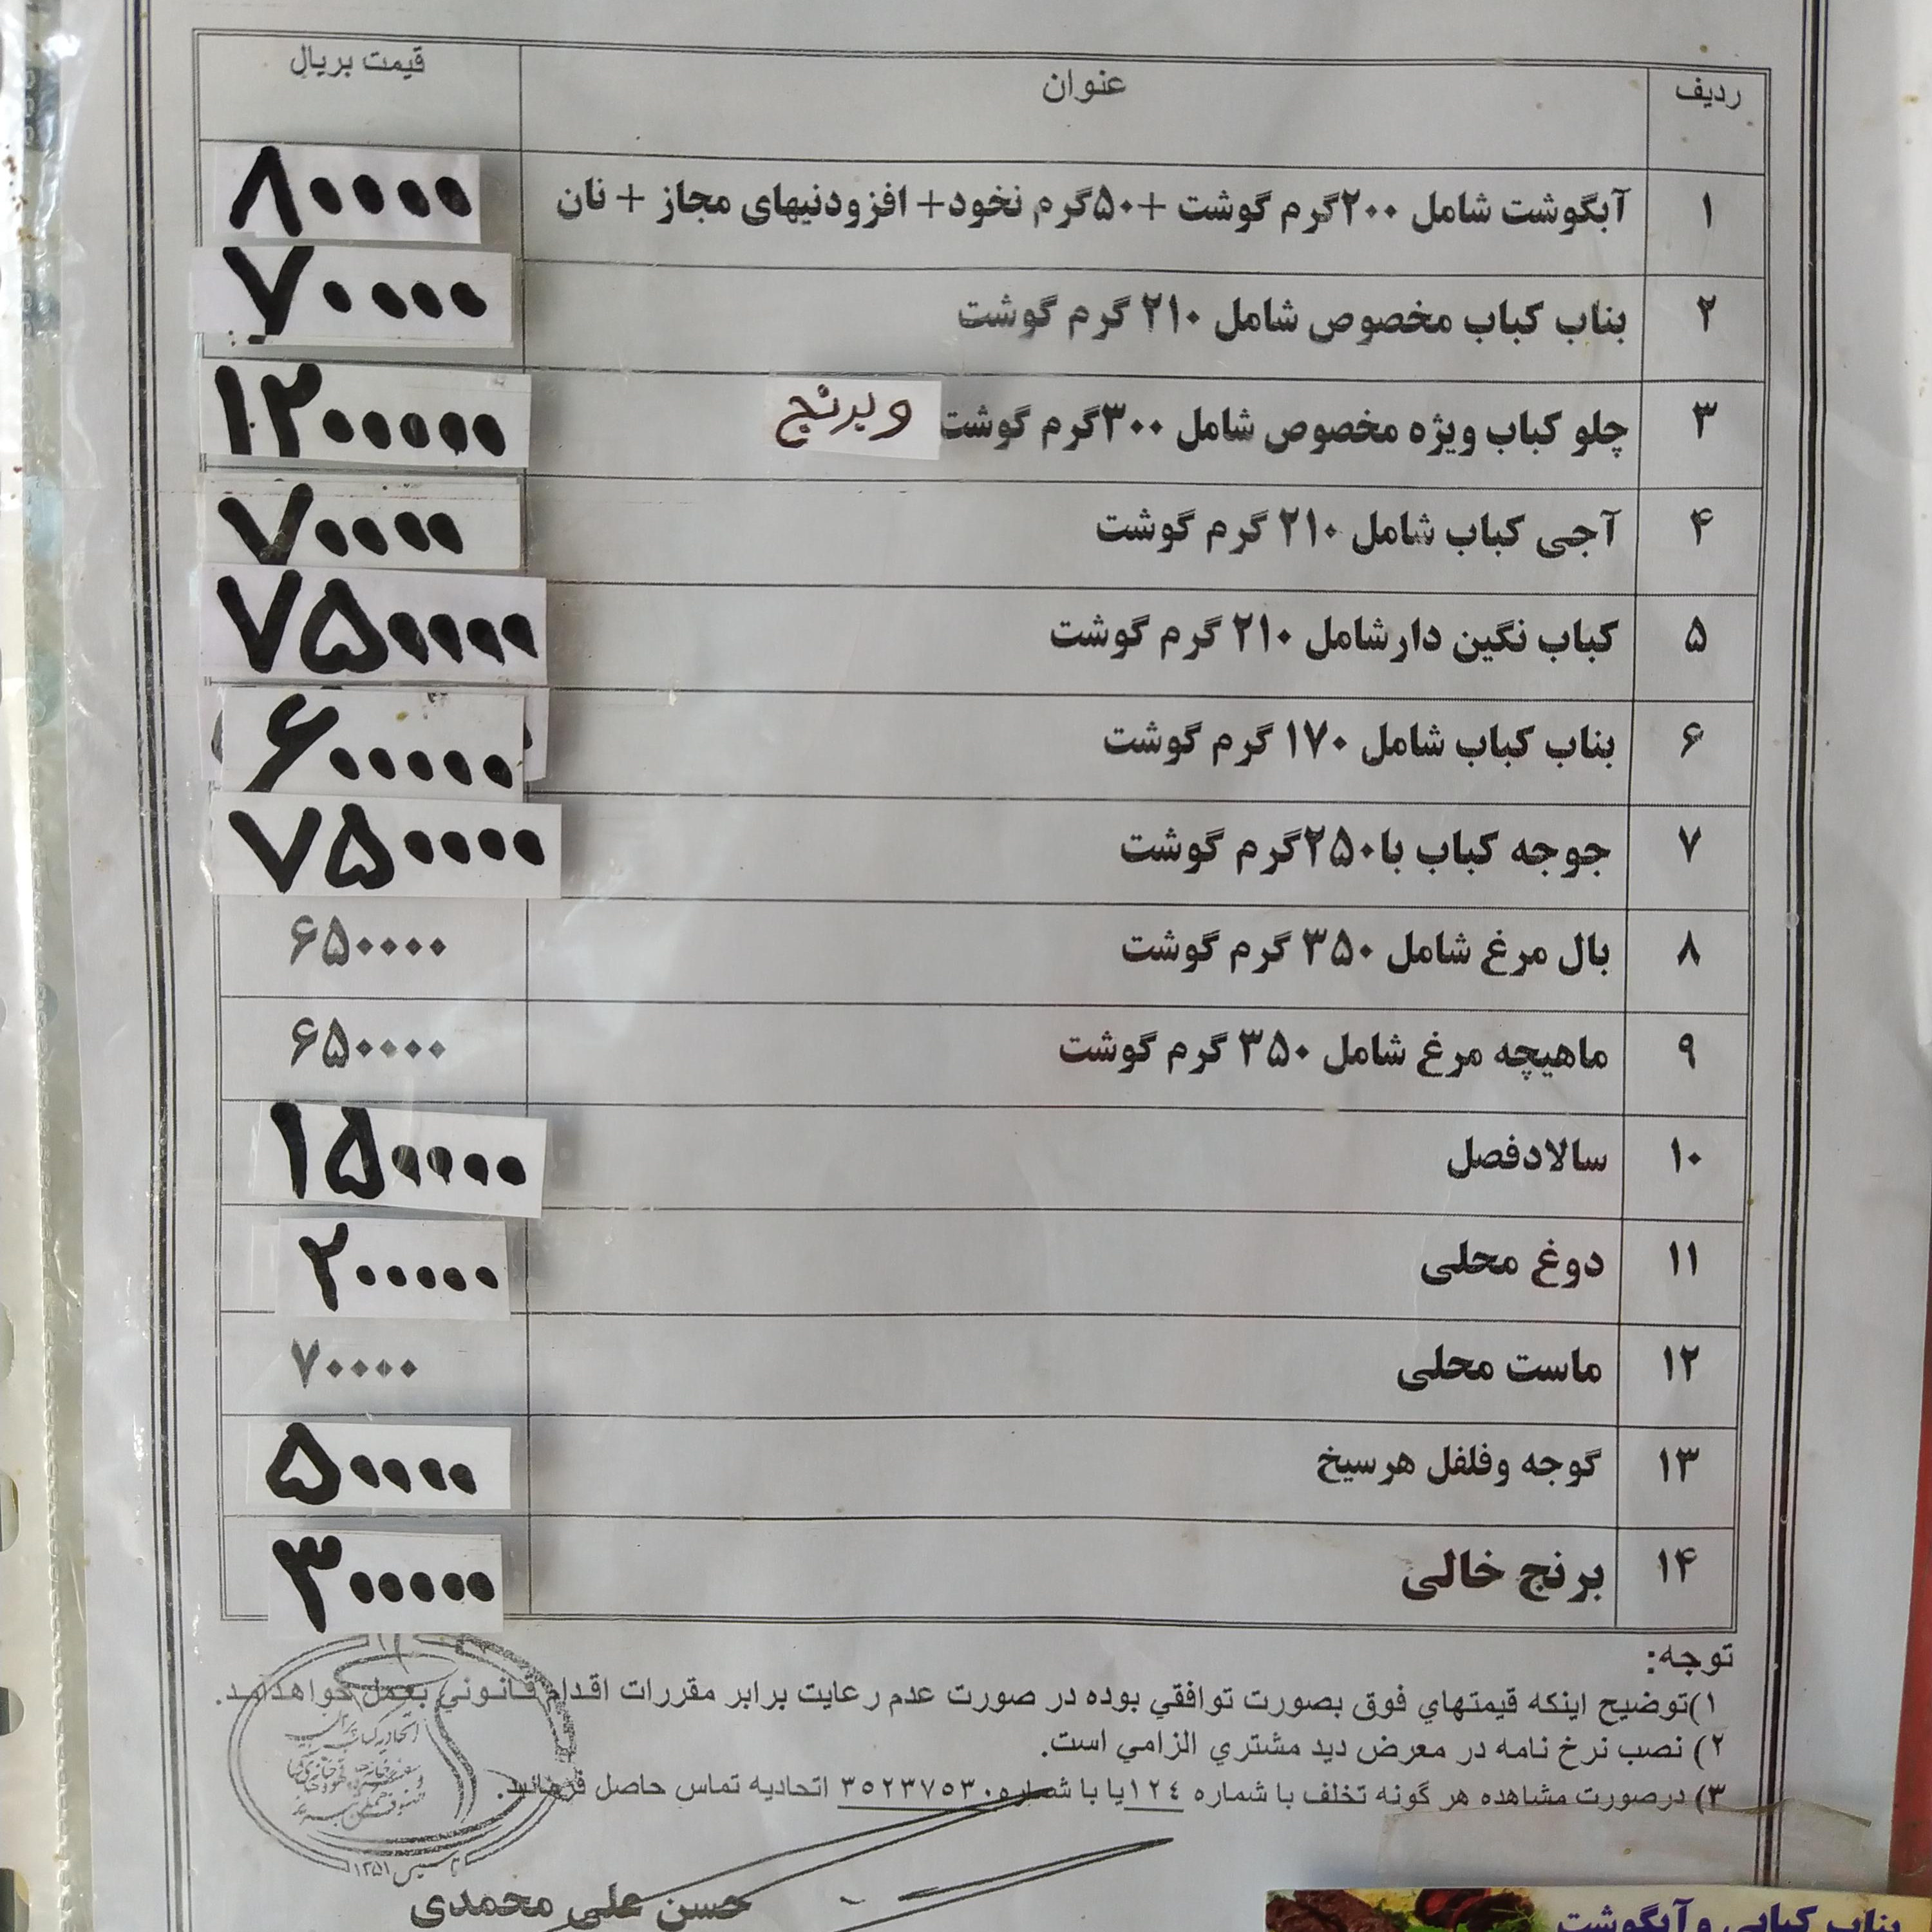 ردیف عنوان قیمت بریال
۱ آبگوشت شامل ۲۰۰گرم گوشت +۵۰گرم نخود+ افزودنیهای مجاز + نان ۸۰۰۰۰
۲ بناب کباب مخصوص شامل ۲۱۰ گرم گوشت ۷۰۰۰۰
۳ چلو کباب ویژه مخصوص شامل ۳۰۰گرم گوشت و برنج ۱۲۰۰۰۰۰۰
۴ آجی کباب شامل ۲۱۰ گرم گوشت ۷۰۰۰۰
۵ کباب نگین دارشامل ۲۱۰ گرم گوشت ۷۵۰۰۰۰
۶ بناب کباب شامل ۱۷۰ گرم گوشت ۶۰۰۰۰۰
۷ جوجه کباب با۲۵۰گرم گوشت ۷۵۰۰۰۰
۸ بال مرغ شامل ۳۵۰ گرم گوشت ۶۵۰۰۰۰
۹ ماهیچه مرغ شامل ۳۵۰ گرم گوشت ۶۵۰۰۰۰
۱۰ سالادفصل ۱۵۰۰۰۰
۱۱ دوغ محلی ۲۰۰۰۰۰
۱۲ ماست محلی ۷۰۰۰۰
۱۳ گوجه وفلفل هرسیخ ۵۰۰۰۰
۱۴ برنج خالی ۳۰۰۰۰۰
توجه:
۱)توضیح اینکه قیمتهاي فوق بصورت توافقي بوده در صورت عدم رعایت برابر مقررات اقدام قانوني بعمل خواهدآمد.
۲) نصب نرخ نامه در معرض دید مشتري الزامي است.
۳) درصورت مشاهده هر گونه تخلف با شماره ١٢٤یا با شماره٣٥٢٣٧٥٣٠ اتحادیه تماس حاصل فرمائید.
تاسیس ۱۳۵۱
حسن علی محمدی
بناب کبابی و آبگوشت